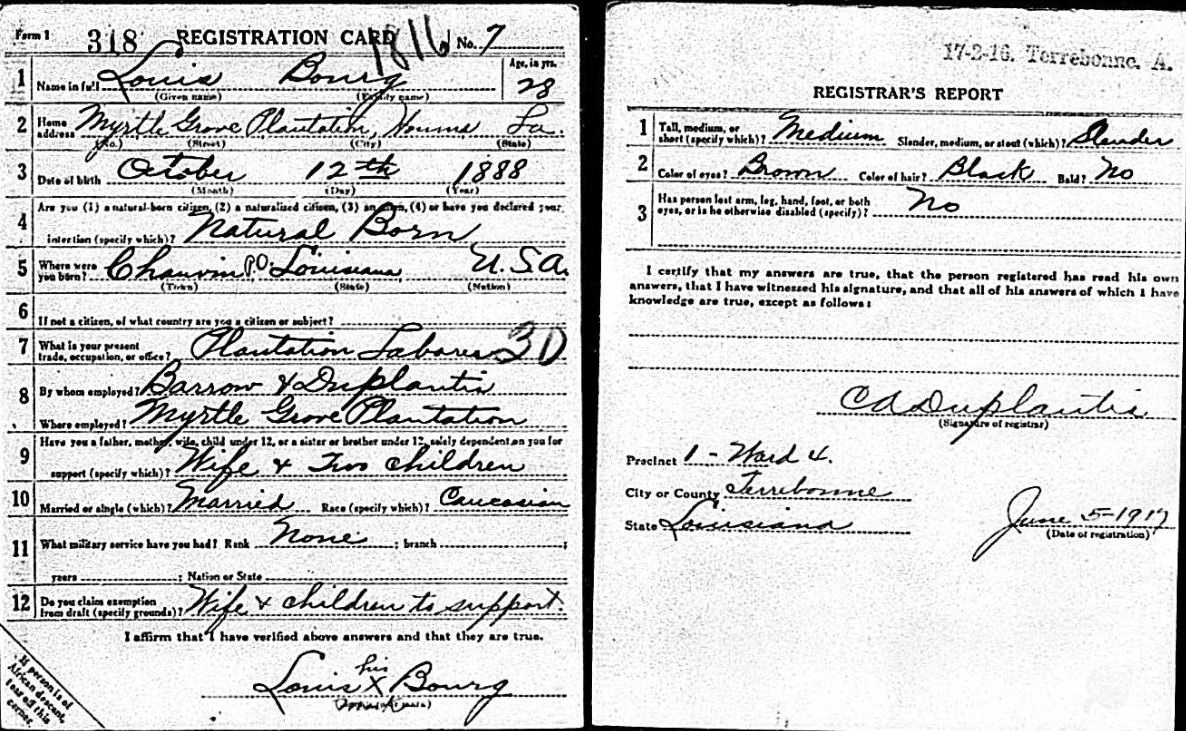 Form 1 318 REGISTRATION CARD 1816 No. 7
1 Name in full Louis Bourg Age, in yrs. 28
(Given name) (Family name)
2 Home address Myrtle Grove Plantation, Houma La.
(No.) (Street) (City) (State)
3 Date of birth October 12th 1888
(Month) (Day) (Year)
4 Are you (1) a natural-born citizen, (2) a naturalized citizen, (3) an alien, (4) or have you declared your
intention (specify which)? Natural Born
5 Where were you born? Chauvin P.O. Louisiana U.S.A.
(Town) (State) (Nation)
6 If not a citizen, of what country are you a citizen or subject?
7 What is your present trade, occupation, or office? Plantation Laborer 30
8 By whom employed? Barrow & Duplantis
Where employed? Myrtle Grove Plantation
9 Have you a father, mother, wife, child under 12, or a sister or brother under 12, solely dependent on you for
support (specify which)? Wife & Two children
10 Married or single (which)? Married Race (specify which)? Caucasian
11 What military service have you had? Rank None ; branch ;
years ; Nation or State
12 Do you claim exemption from draft (specify grounds)? Wife & children to support.
I affirm that I have verified above answers and that they are true.
his
Louis X Bourg
If person is of
African descent,
tear off this
corner.
17-2-16. Terrebonne. A.
REGISTRAR'S REPORT
1 Tall, medium, or short (specify which)? Medium Slender, medium, or stout (which)? Slender
2 Color of eyes? Brown Color of hair? Black Bald? No
3 Has person lost arm, leg, hand, foot, or both eyes, or is he otherwise disabled (specify)? No
I certify that my answers are true, that the person registered has read his own
answers, that I have witnessed his signature, and that all of his answers of which I have
knowledge are true, except as follows:
C A Duplantis
(Signature of registrar)
Precinct 1 - Ward 4.
City or County Terrebonne
State Louisiana
June 5-1917
(Date of registration)